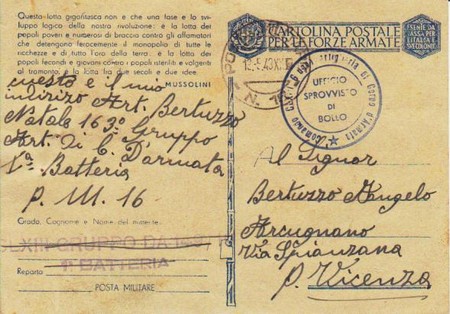 Questa lotta gigantesca non è che una fase e lo svi-
luppo logico della nostra rivoluzione: è la lotta dei
popoli poveri e numerosi di braccia contro gli affamatori
che detengono ferocemente il monopolio di tutte le
ricchezze e di tutto l'oro della terra: è la lotta dei
popoli giovani e fecondi contro i popoli isteriliti e volgenti
al tramonto, è la lotta fra due secoli e due idee
MUSSOLINI
questo e il mio
indirizo Art. Bertuzzo
Natale 163° Gruppo
Art. di C. D'armata
1ª Batteria
P. M. 16
Grado, Cognome e Nome del mittente
GRUPPO DA
1ª BATTERIA
Reparto
POSTA MILITARE
CARTOLINA POSTALE
PER LE FORZE ARMATE
ESENTE DA
TASSA PER
L'ITALIA E
SUE COLONIE
UFFICIO
SPROVVISTO
DI
BOLLO
Al Signor
Bertuzzo Angelo
Arcugnano
Via Spianzana
P. Vicenza